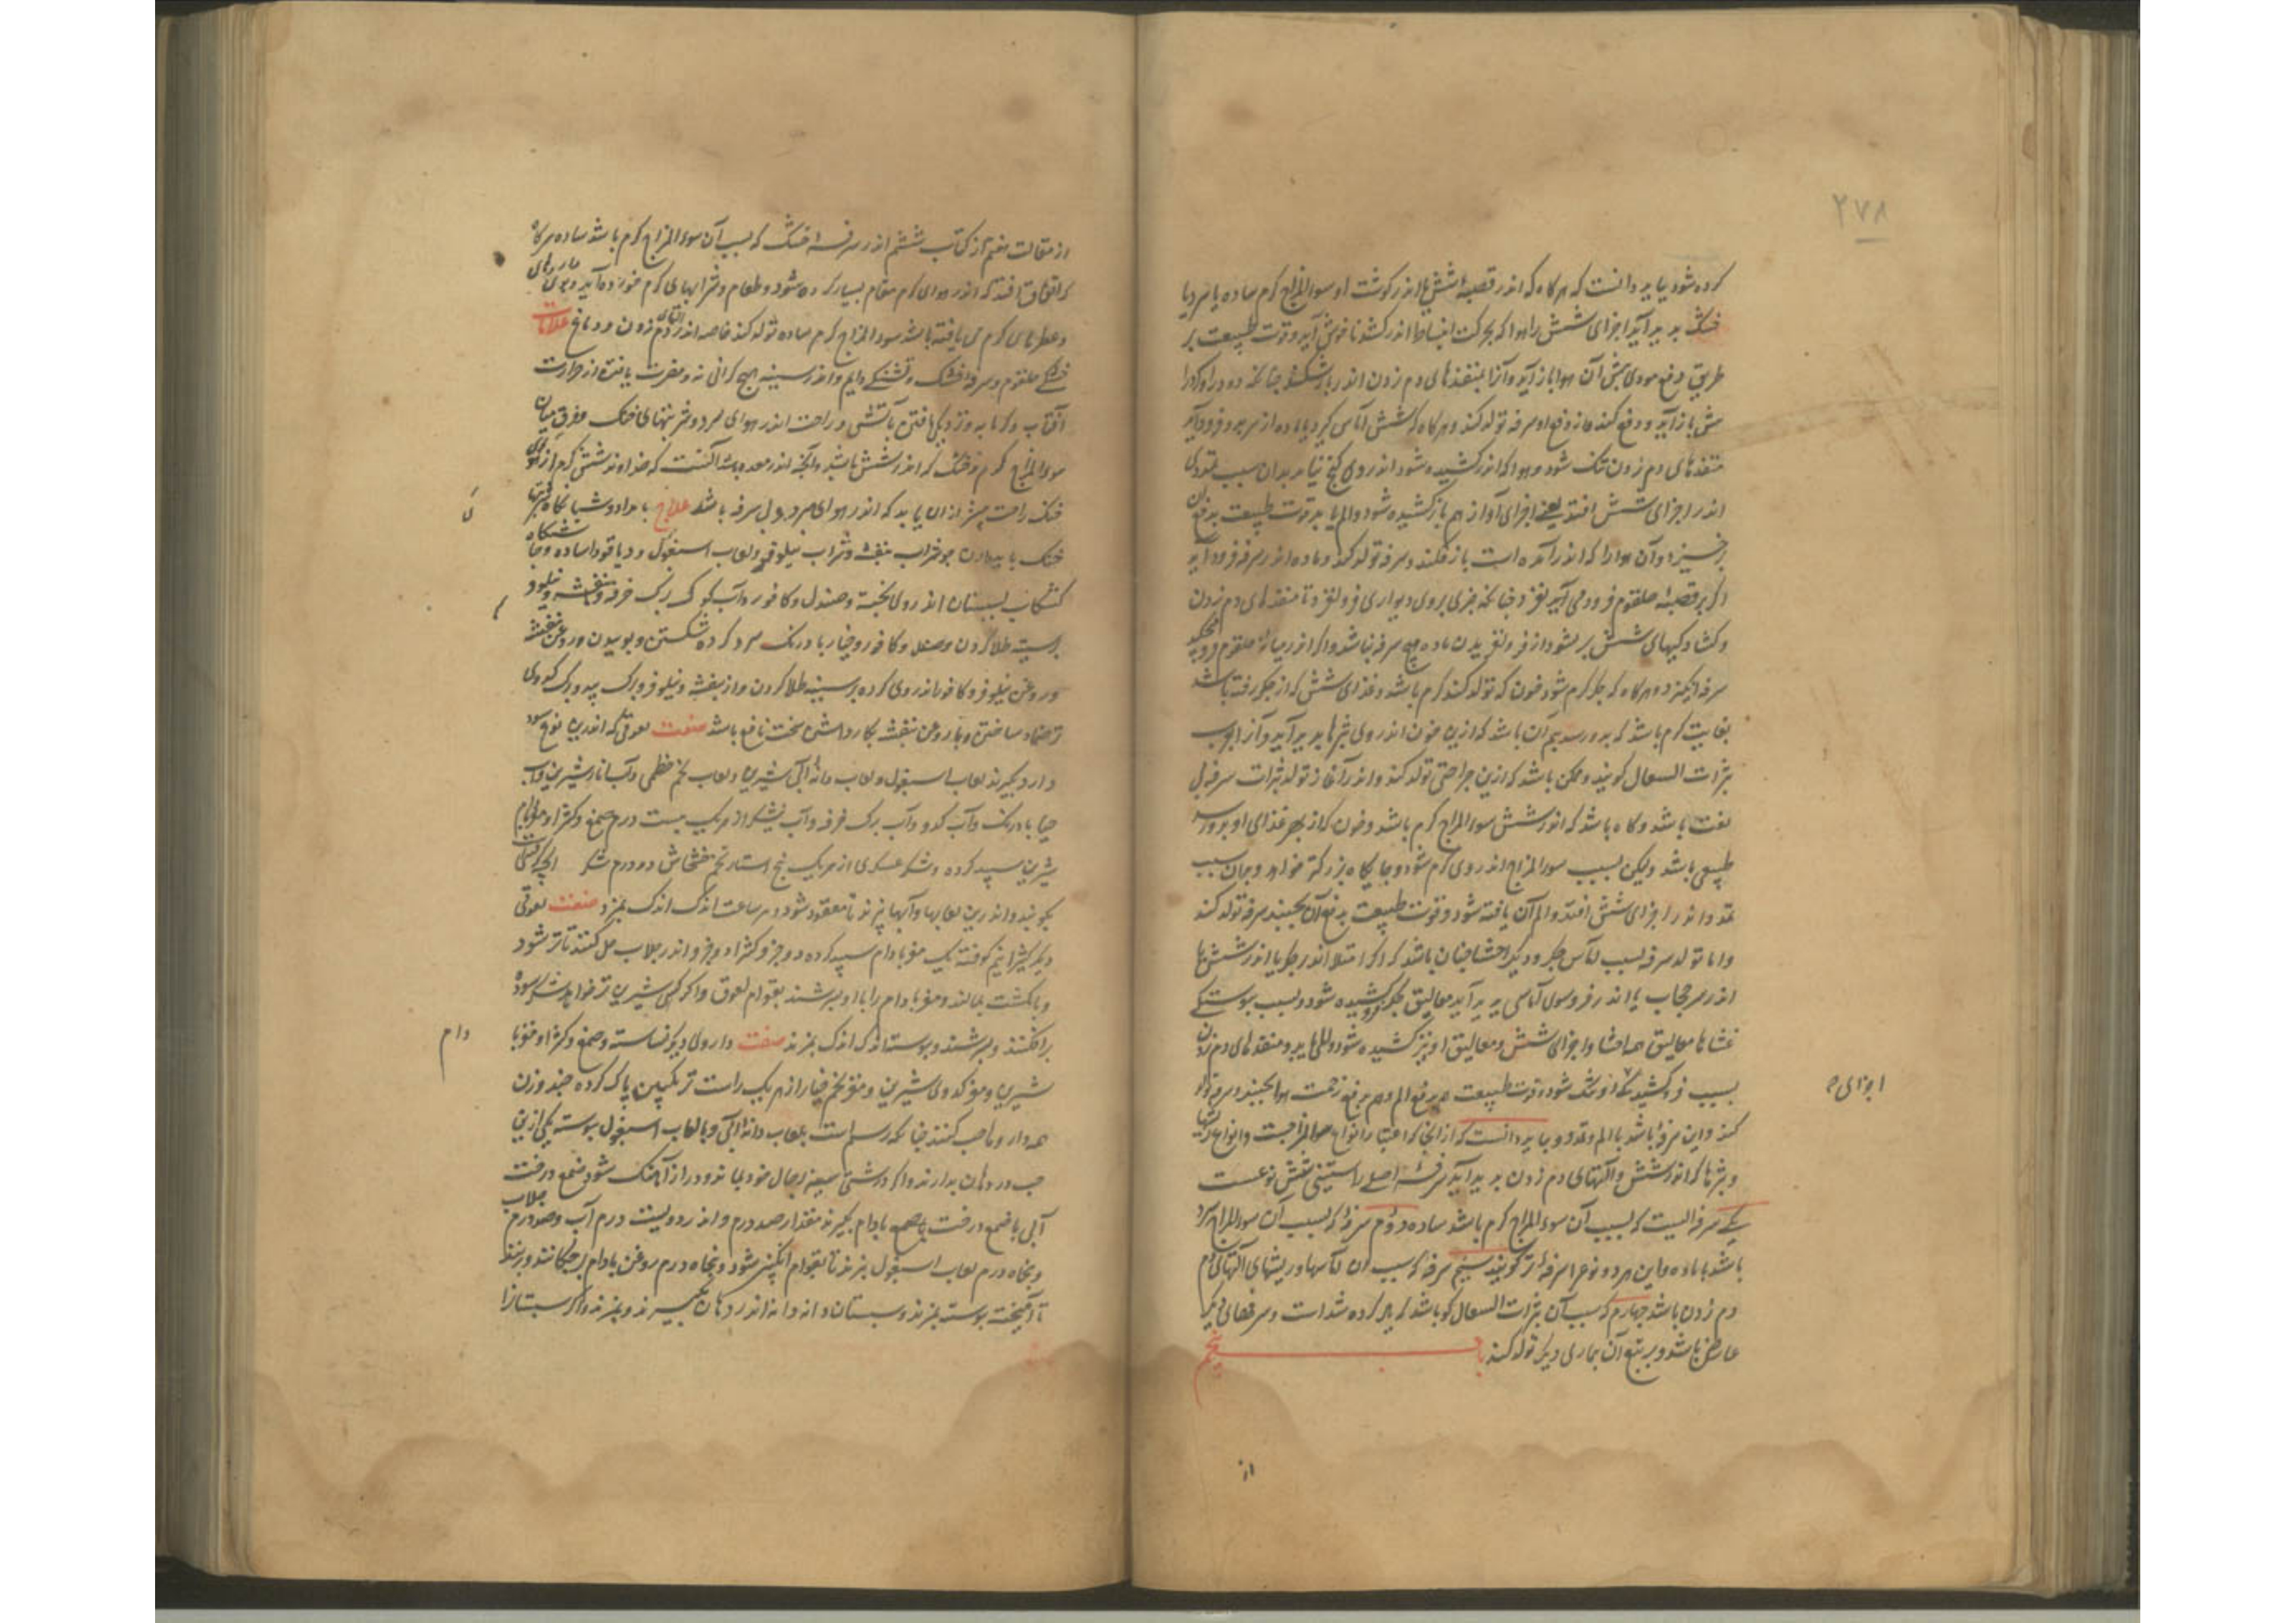 ۲۷۸
کرده شود بباید دانست که هرگاه که اندر قصبه شش یا اندر گوشت او سوء المزاج گرم ساده یا سرد یا
خشک پدید آید اجزای شش را هوا که بحرکت انبساط اندر کشد ناخوش آید و قوت طبیعت بر
طریق دفع موذی آن هوا باز آید و آنرا بمنفذهای دم زدن اندر باز شکند چنانکه دود را و گرد را
باز آید و دفع کند و از دفع او سرفه تولد کند و هرگاه که شش آماس گیرد یا ماده از سر بدو فرود آید
منفذهای دم زدن تنگ شود و هوا که اندر کشیده شود اندر وی گنج نیابد بدان سبب تمددی
اندر اجزای شش افتد یعنی اجزای آواز هم باز کشیده شود و الم یابد قوت طبیعت بدفع آن
برخیزد و آن هوا را که اندر آمده است باز فکند و سرفه تولد کند و ماده اندر سرفه فرود آید
اگر بر قصبه حلقوم فرود می آید نغزد چنانکه چیزی بروی دیواری فرو لغزد تا منفذهای دم زدن
و گشادگیهای شش بر نشود از فرو لغزیدن ماده هیچ سرفه نباشد و اگر اندر میانه حلقوم فرو چکد
سرفه انگیزد و هرگاه که جگر گرم شود خون که تولد کند گرم باشد و غذای شش که از جگر رفته باشد
بغایت گرم باشد که بدو رسد بیم آن باشد که ازین خون اندر وی بثرها پدید آید و آنرا بوب
بثرات السعال گویند و ممکن باشد که ازین جراحتی تولد کند و اندر آغاز تولد بثرات سرفه بی
نفث باشد و گاه باشد که اندر شش سوء المزاج گرم باشد و خون که از بهر غذای او بدو رسد
طبیعی باشد ولیکن بسبب سوء المزاج اندر وی گرم شود و جایگاه بزرگتر خواهد و بدان سبب
تمدد اندر اجزای شش افتد و الم آن یافته شود و قوت طبیعت بدفع آن بجنبد سرفه تولد کند
و اما تولد سرفه بسبب آماس جگر و دیگر احشا چنان باشد که اگر امتلا اندر جگر یا اندر شش یا
اندر سر حجاب یا اندر فروسوی آماسی پدید آید معالیق جگر کشیده شود و بسبب پیوستگی
غشاها معالیق احشا و اجزای شش و معالیق او نیز کشیده شود و المی یابد و منفذهای دم زدن
بسبب فرو کشیدگی او تنگ شود و قوت طبیعت هم بدفع الم و هم بدفع زحمت هوا بجنبد و سرفه تولد
اجزای
کند و این سرفه باشد با الم و تمدد و بباید دانست که از آنجا که اعتبار انواع سوء المزاجست و انواع
و بثرها که اندر شش و آلتهای دم زدن پدید آید سرفه اصلی راستینی شش نوعست
یکی سرفه ایست که بسبب آن سوء المزاج گرم باشد ساده دوم سرفه که بسبب آن سوء المزاج سرد
باشد با ماده و این هر دو نوع را سرفه تر گویند سیم سرفه که سبب آن آماسها و ریشهای آلتهای
دم زدن باشد چهارم که سبب آن بثرات السعال گو باشد که یاد کرده شد است و سرفهای دیگر
عارضی باشد و بر تبع آن بیماری دیگر تولد کند باب پنجم
از
از مقالت هفتم از کتاب ششم اندر سرفه خشک که بسبب آن سوء المزاج گرم باشد ساده هرگاه
که اتفاق افتد که اندر هوای گرم مقام بسیار کرده شود و طعام و شرابهای گرم خورده آید و بوی داروهای
و عطرهای گرم می یافته باشد سوء المزاج گرم ساده تولد کند خاصه اندر آلتهای دم زدن و دماغ علامات
خشکی حلقوم و سرفه خشک و تشنگی دایم و اندر سینه هیچ گرانی نه و مضرت یافتن از حرارت
آفتاب و گرمابه و نزدیکی یافتن آتش و راحت اندر هوای سرد و شربتهای خنک و فرق میان
سوء المزاج گرم و خشک که اندر شش باشد و آنکه اندر معده باشد آنست که خداوند شش گرم از
خنک راحت بیشتر از ان یابد که اندر هوای سرد و بی سرفه باشد علاج بامداد و شبانگاه شربتهای
خنک باید دادن چو شراب بنفشه و شراب نیلوفر و لعاب اسبغول و دیاقودا ساده و شبنگاه
کشکاب سپستان اندر وی پخته و صندل و کافور و آب کوک و برگ خرفه و بنفشه و نیلوفر
بر سینه طلا کردن و صندل و کافور و خیار بادرنگ سرد کرده شکستن و بوییدن و روغن بنفشه
و روغن نیلوفر و کافور اندر وی کرده بر سینه طلا کردن و از بنفشه و نیلوفر و برگ بید و برگ کدوی
تر ضماد ساختن و با روغن بنفشه بکار داشتن سخت نافع باشد صفت لعوقی که اندرین نوع سود
دارد بگیرند لعاب اسبغول و لعاب دانه آبی شیرین و لعاب تخم خطمی و آب انار شیرین و آب
خیار بادرنگ و آب کدو و آب برگ خرفه و آب نیشکر از هر یک بیست درم صمغ و کتیرا و مغز بادام
شیرین سپید کرده و شکر عسکری از هر یک پنج استار تخم خشخاش ده درم شکر آنچه کوفتنیست
بکوبند و اندرین لعابها و آبها بپزند تا معقود شود و هر ساعت اندک اندک بمزد صفت لعوقی
دیگر کتیرا نیم کوفته یک مغز بادام سپید کرده دو جزو کتیرا دو جزو اندر جلاب حل کنند تا تر شود
و بانگشت بمالند و مغز بادام را با او بسرشند بقوام لعوق و اگر کسی شیرین تر خواهد شکر سوده
برافکنند و بسرشند و پیوسته اندک اندک بمزند صفت داروی دیگر نشاسته و صمغ و کتیرا و مغز با
دام
شیرین و مغز کدوی شیرین و مغز تخم خیار از هر یک راست ترنگبین پاک کرده چند وزن
همه دارو حب کنند چنانکه رسم است بلعاب دانه آبی و بالعاب اسبغول پیوسته یکی ازین
حب در دهان بدارند و اگر درشتی سینه بحال خود بماند و دراز آهنگ شود صمغ درخت
آبی یا صمغ درخت یا صمغ بادام بگیرند مقدار صد درم و اندر دویست درم آب و صد درم جلاب
و پنجاه درم لعاب اسبغول بپزند تا بقوام انگبین شود و پنجاه درم روغن بادام برچکانند و بزنند
تا آمیخته پیوسته بمزند و سپستان دانه دانه اندر دهان میگیرند و بمزند و اگر سپستانرا